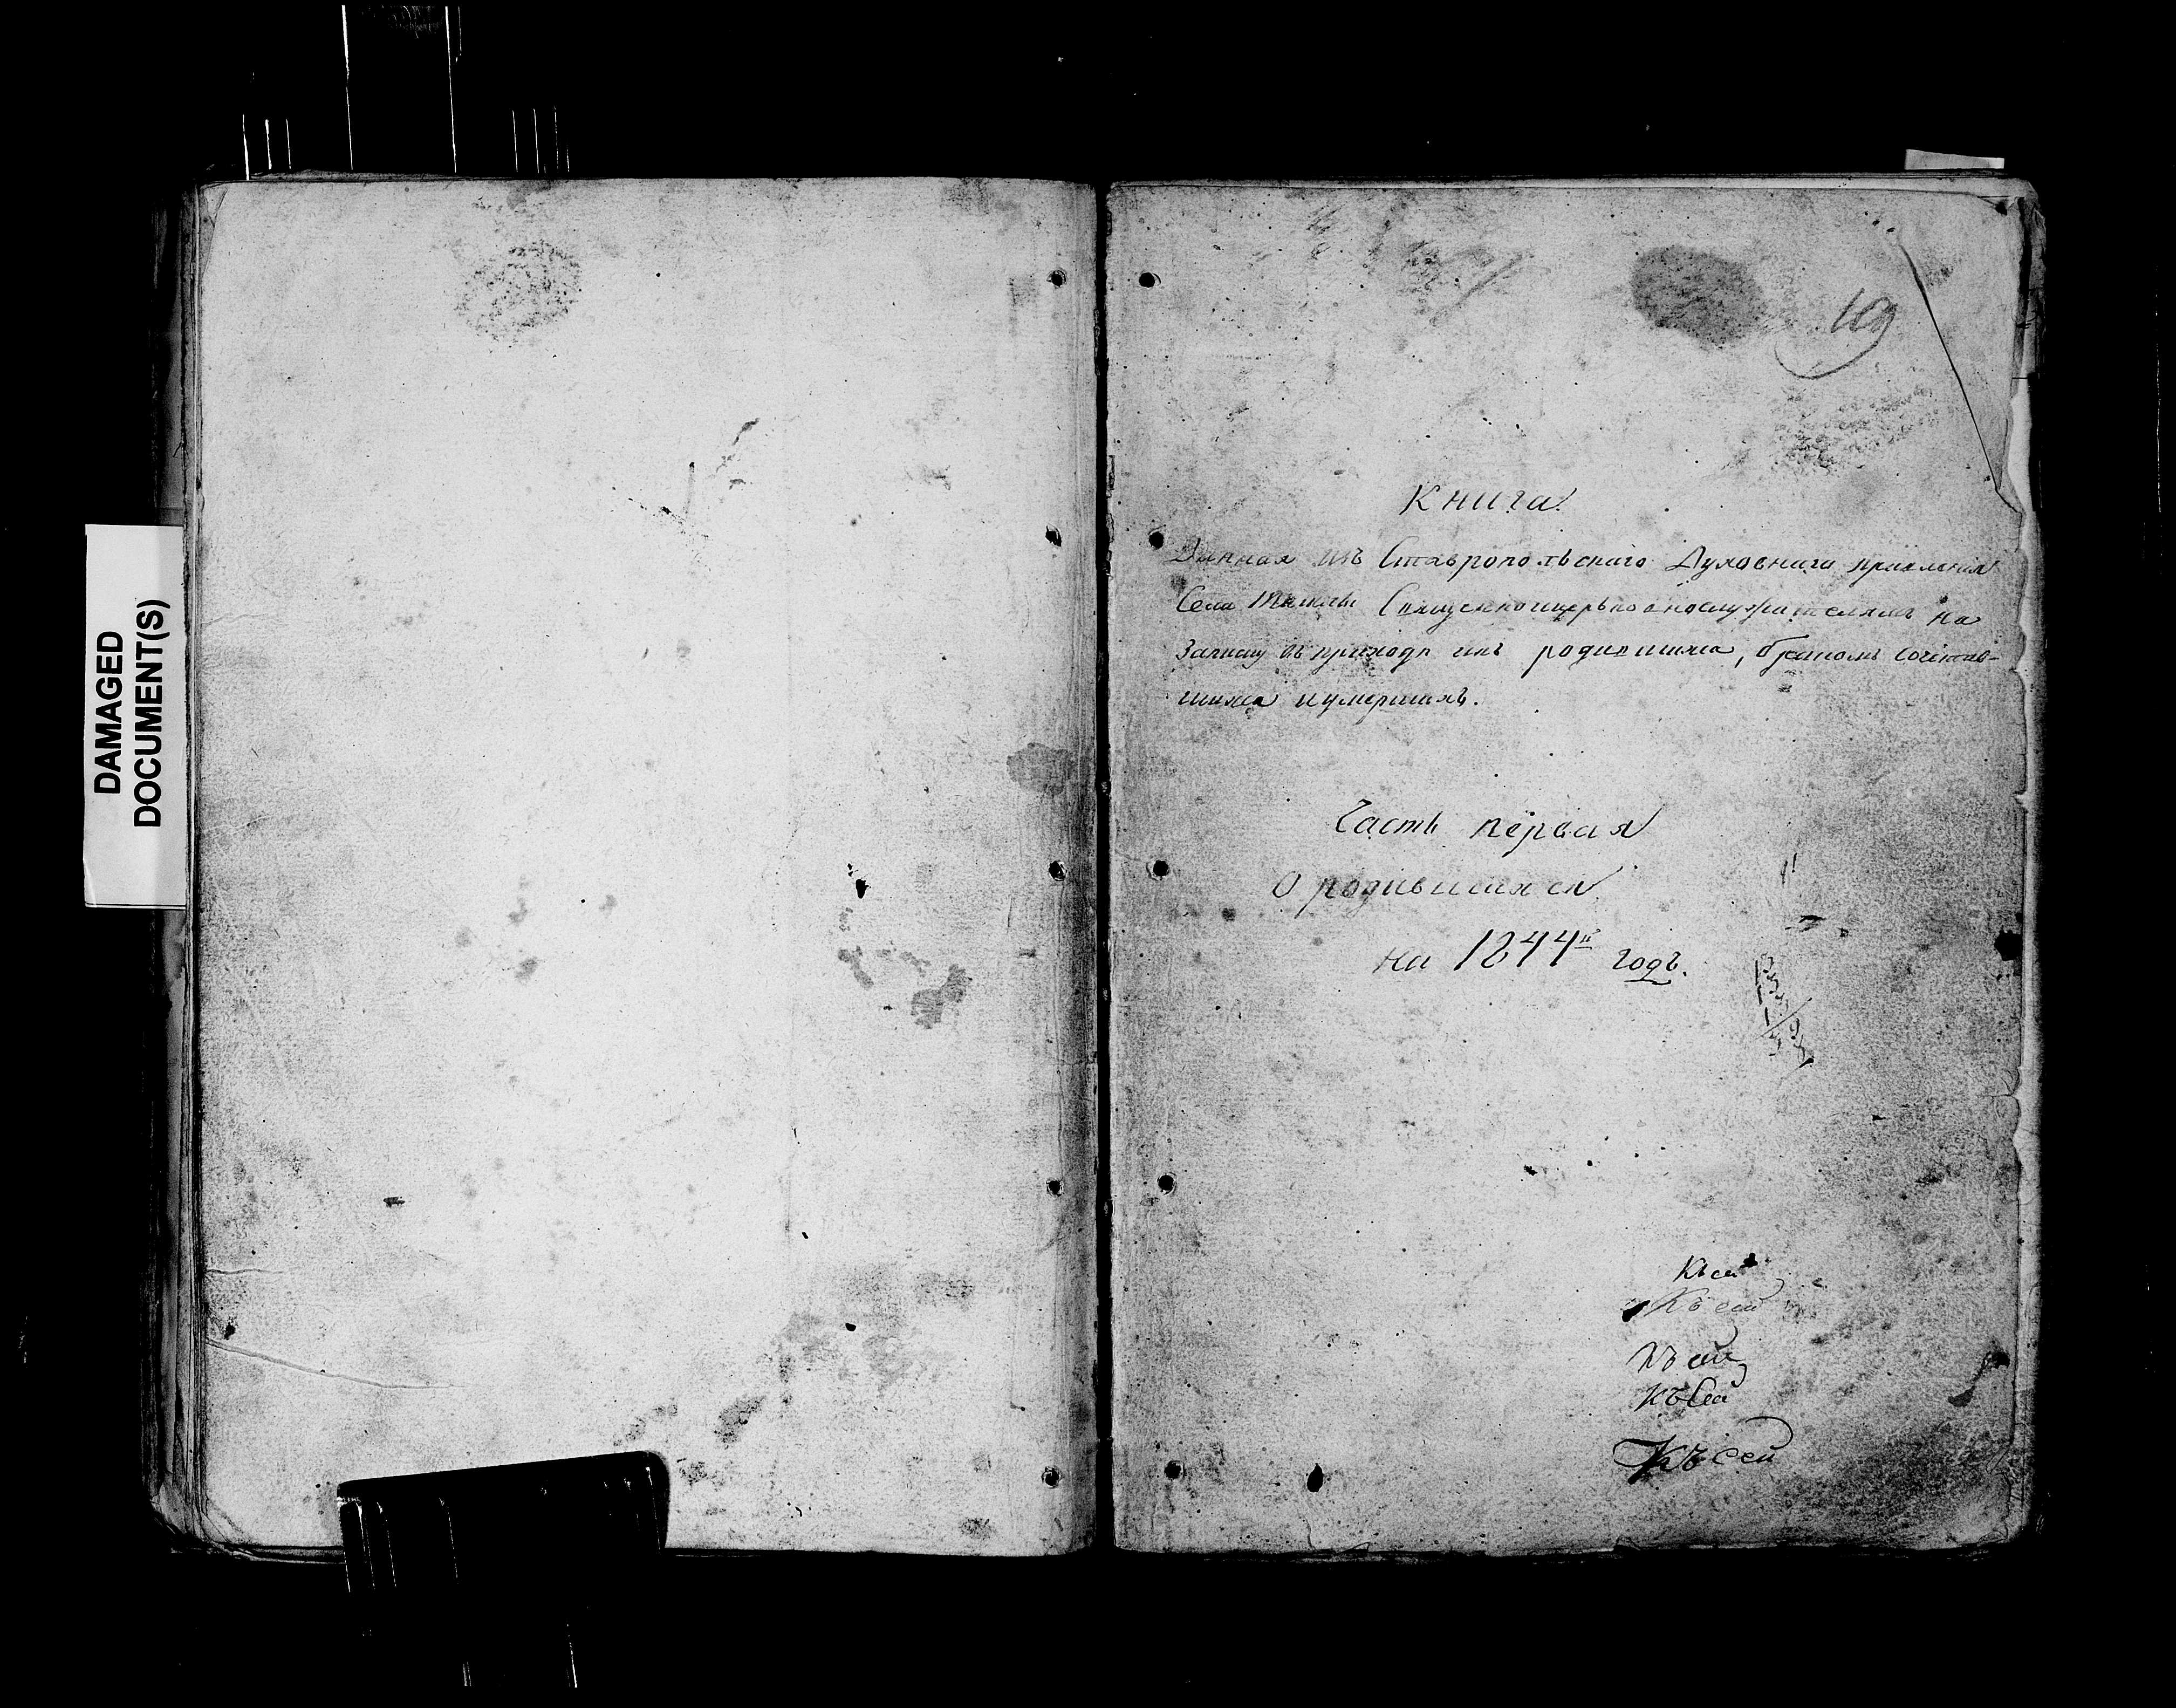 DAMAGED
DOCUMENT(S)
169
Книга
Данная изъ Ставропольскаго Духовнаго правленiя
Села Священноцерковнослужителямъ на
Записку въ приходѣ ихъ родившихся, бракомъ сочетав-
шихся и умершихъ.
Часть первая
О родившихся
на 1844й годъ.
Къ сей
Къ сей
Къ сей
Къ сей
Къ сей